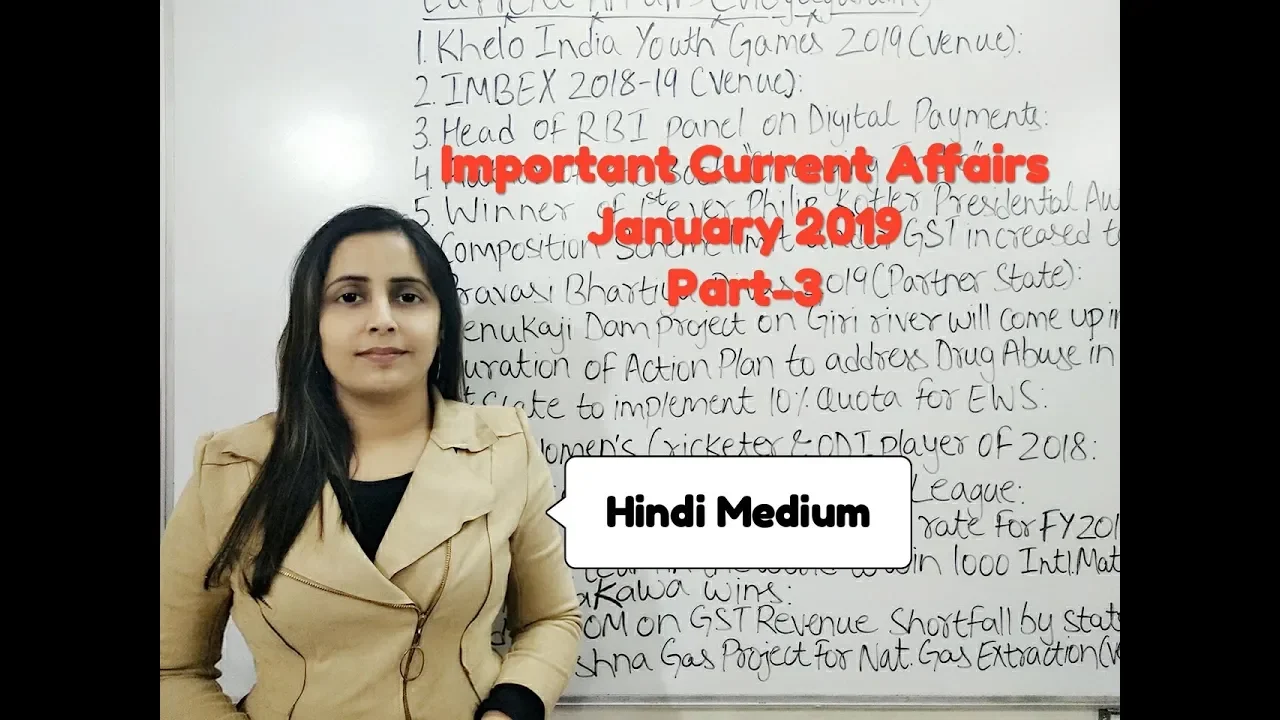 1. Khelo India Youth Games 2019 (Venue):
2. IMBEX 2018-19 (Venue):
3. Head of RBI panel on Digital Payments:
4.
Important Current Affairs
5. Winner of 1st ever Philip Kotler Presidential Aw
January 2019
Composition Scheme limit under GST increased t
Pravasi Bhartiya Divas 2019 (Partner State):
Part-3
enukaji Dam project on Giri river will come up in
uration of Action Plan to address Drug Abuse in
State to implement 10% Quota for EWS:
omen's Cricketer & ODI player of 2018:
League:
Hindi Medium
rate for FY 201
win 1000 Intl. Mat
akawa wins:
OM on GST Revenue Shortfall by Stat
shna Gas Project for Nat. Gas Extraction (V